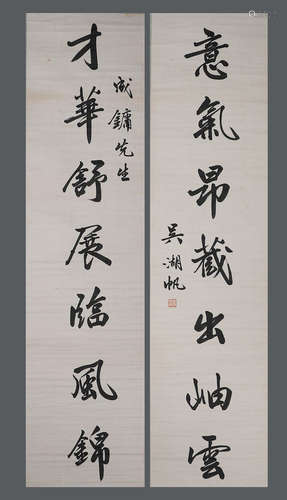 意氣昂藏出岫雲
吳湖帆
成鏞先生
才華舒展臨風錦